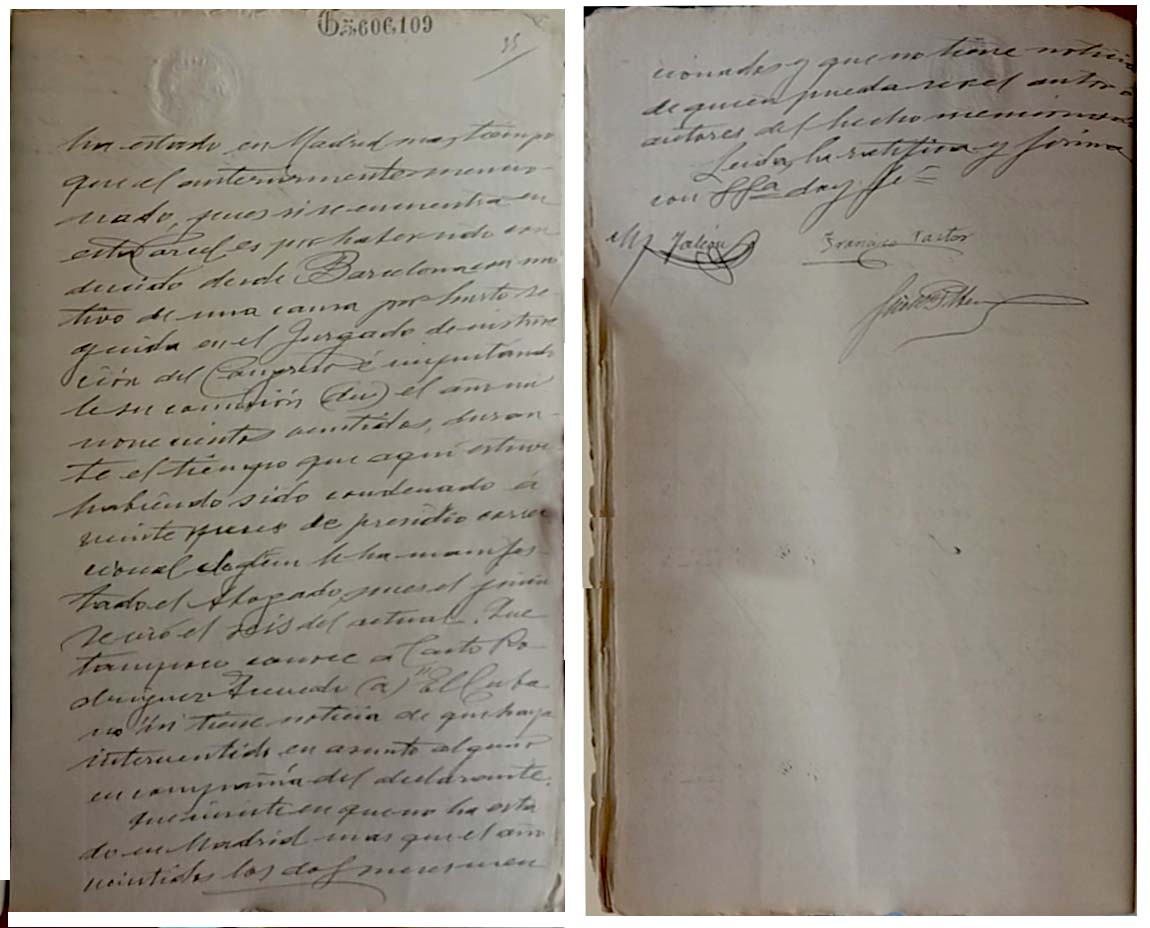 G.5,606,109
35
ha estado en Madrid mas tiempo
que el anteriormente mencio-
nado, pues si se encuentra en
esta Carcel es por haber sido con
ducido desde Barcelona con mo
tivo de una causa por hurto se
guida en el Juzgado de instruc
ción del Congreso é imputando
le su comisión en el año mil
novecientos veintidos, duran-
te el tiempo que aqui estuvo
habiendo sido condenado á
veinte meses de presidio corre
cional segun le ha manifes-
tado el Abogado, pues el juicio
se viró el seis del actual. Que
tampoco conoce a Casto Ro-
driguez Acevedo (a) "El Cuba
no" ni tiene noticia de que haya
intervenido en asunto alguno
en compañía del declarante.
Que insiste en que no ha esta
do en Madrid mas que el año
veintidos los dos meses men
cionados y que no tiene noticia
de quien pueda ser el autor o
autores del hecho mencionado
Leida, la ratifica y firma
con SSª doy fe=
Francisco Pastor